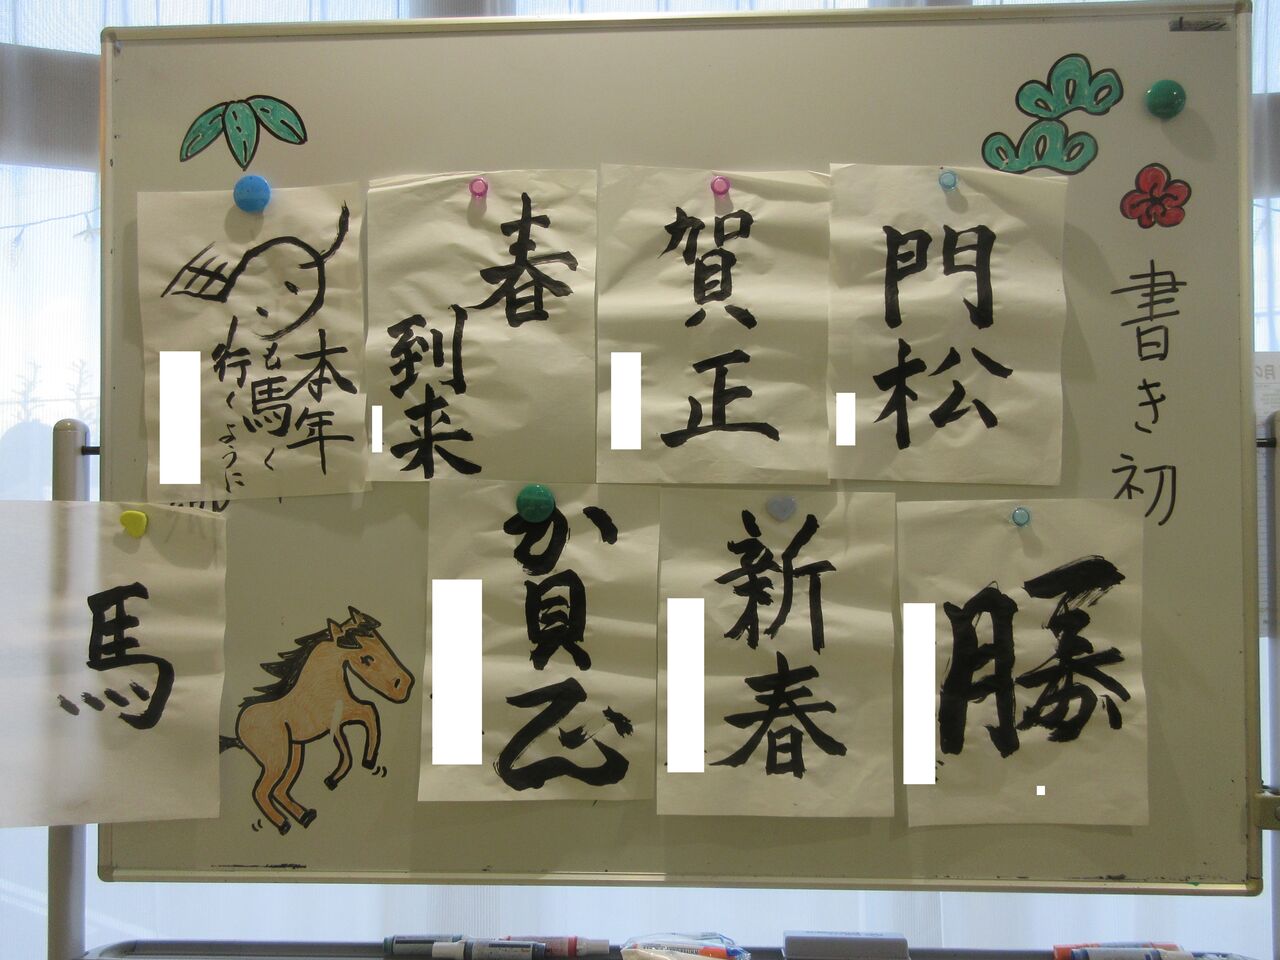 書き初
門松
賀正
春
到来
本年
も馬く
行くように
勝
新春
賀正
馬